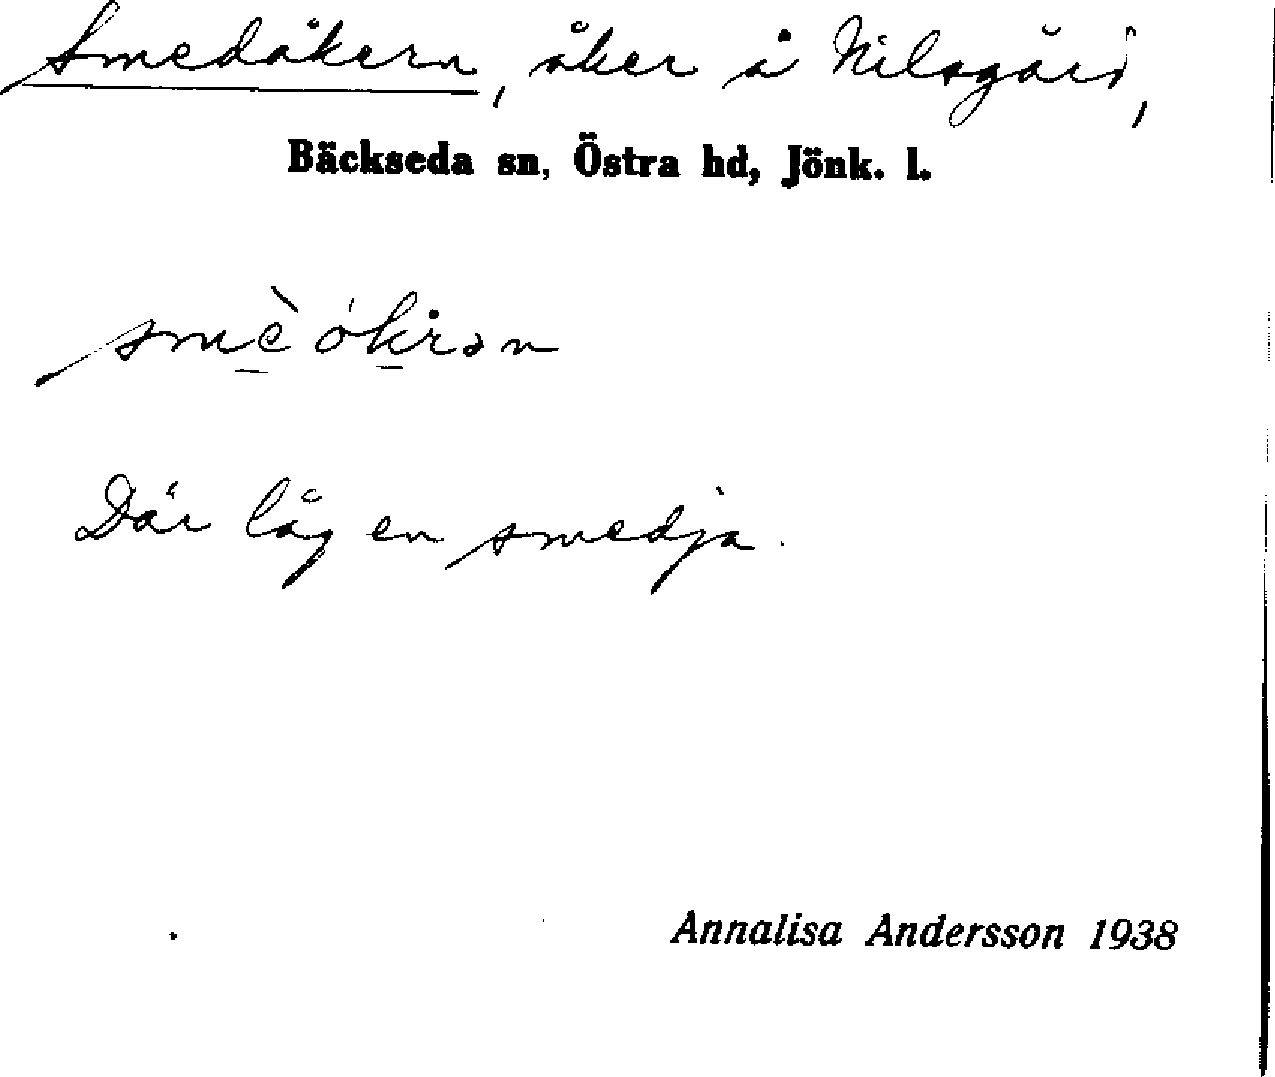 Smedåkern, åker å Nilsgård,
Bäckseda sn, Östra hd, Jönk. l.
smè ókrən
Där låg en smedja.
Annalisa Andersson 1938